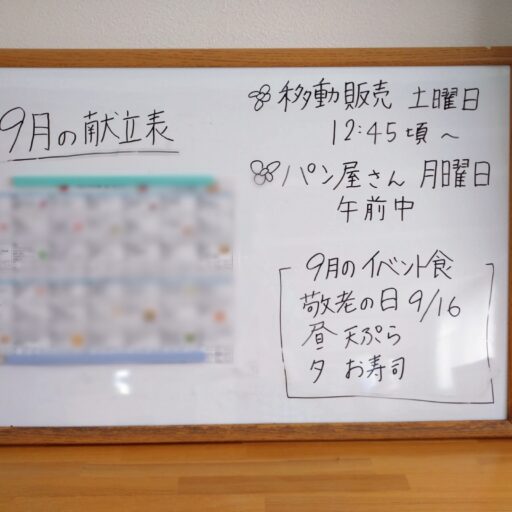 9月の献立表
移動販売 土曜日
12:45頃~
パン屋さん 月曜日
午前中
9月のイベント食
敬老の日 9/16
昼 天ぷら
夕 お寿司